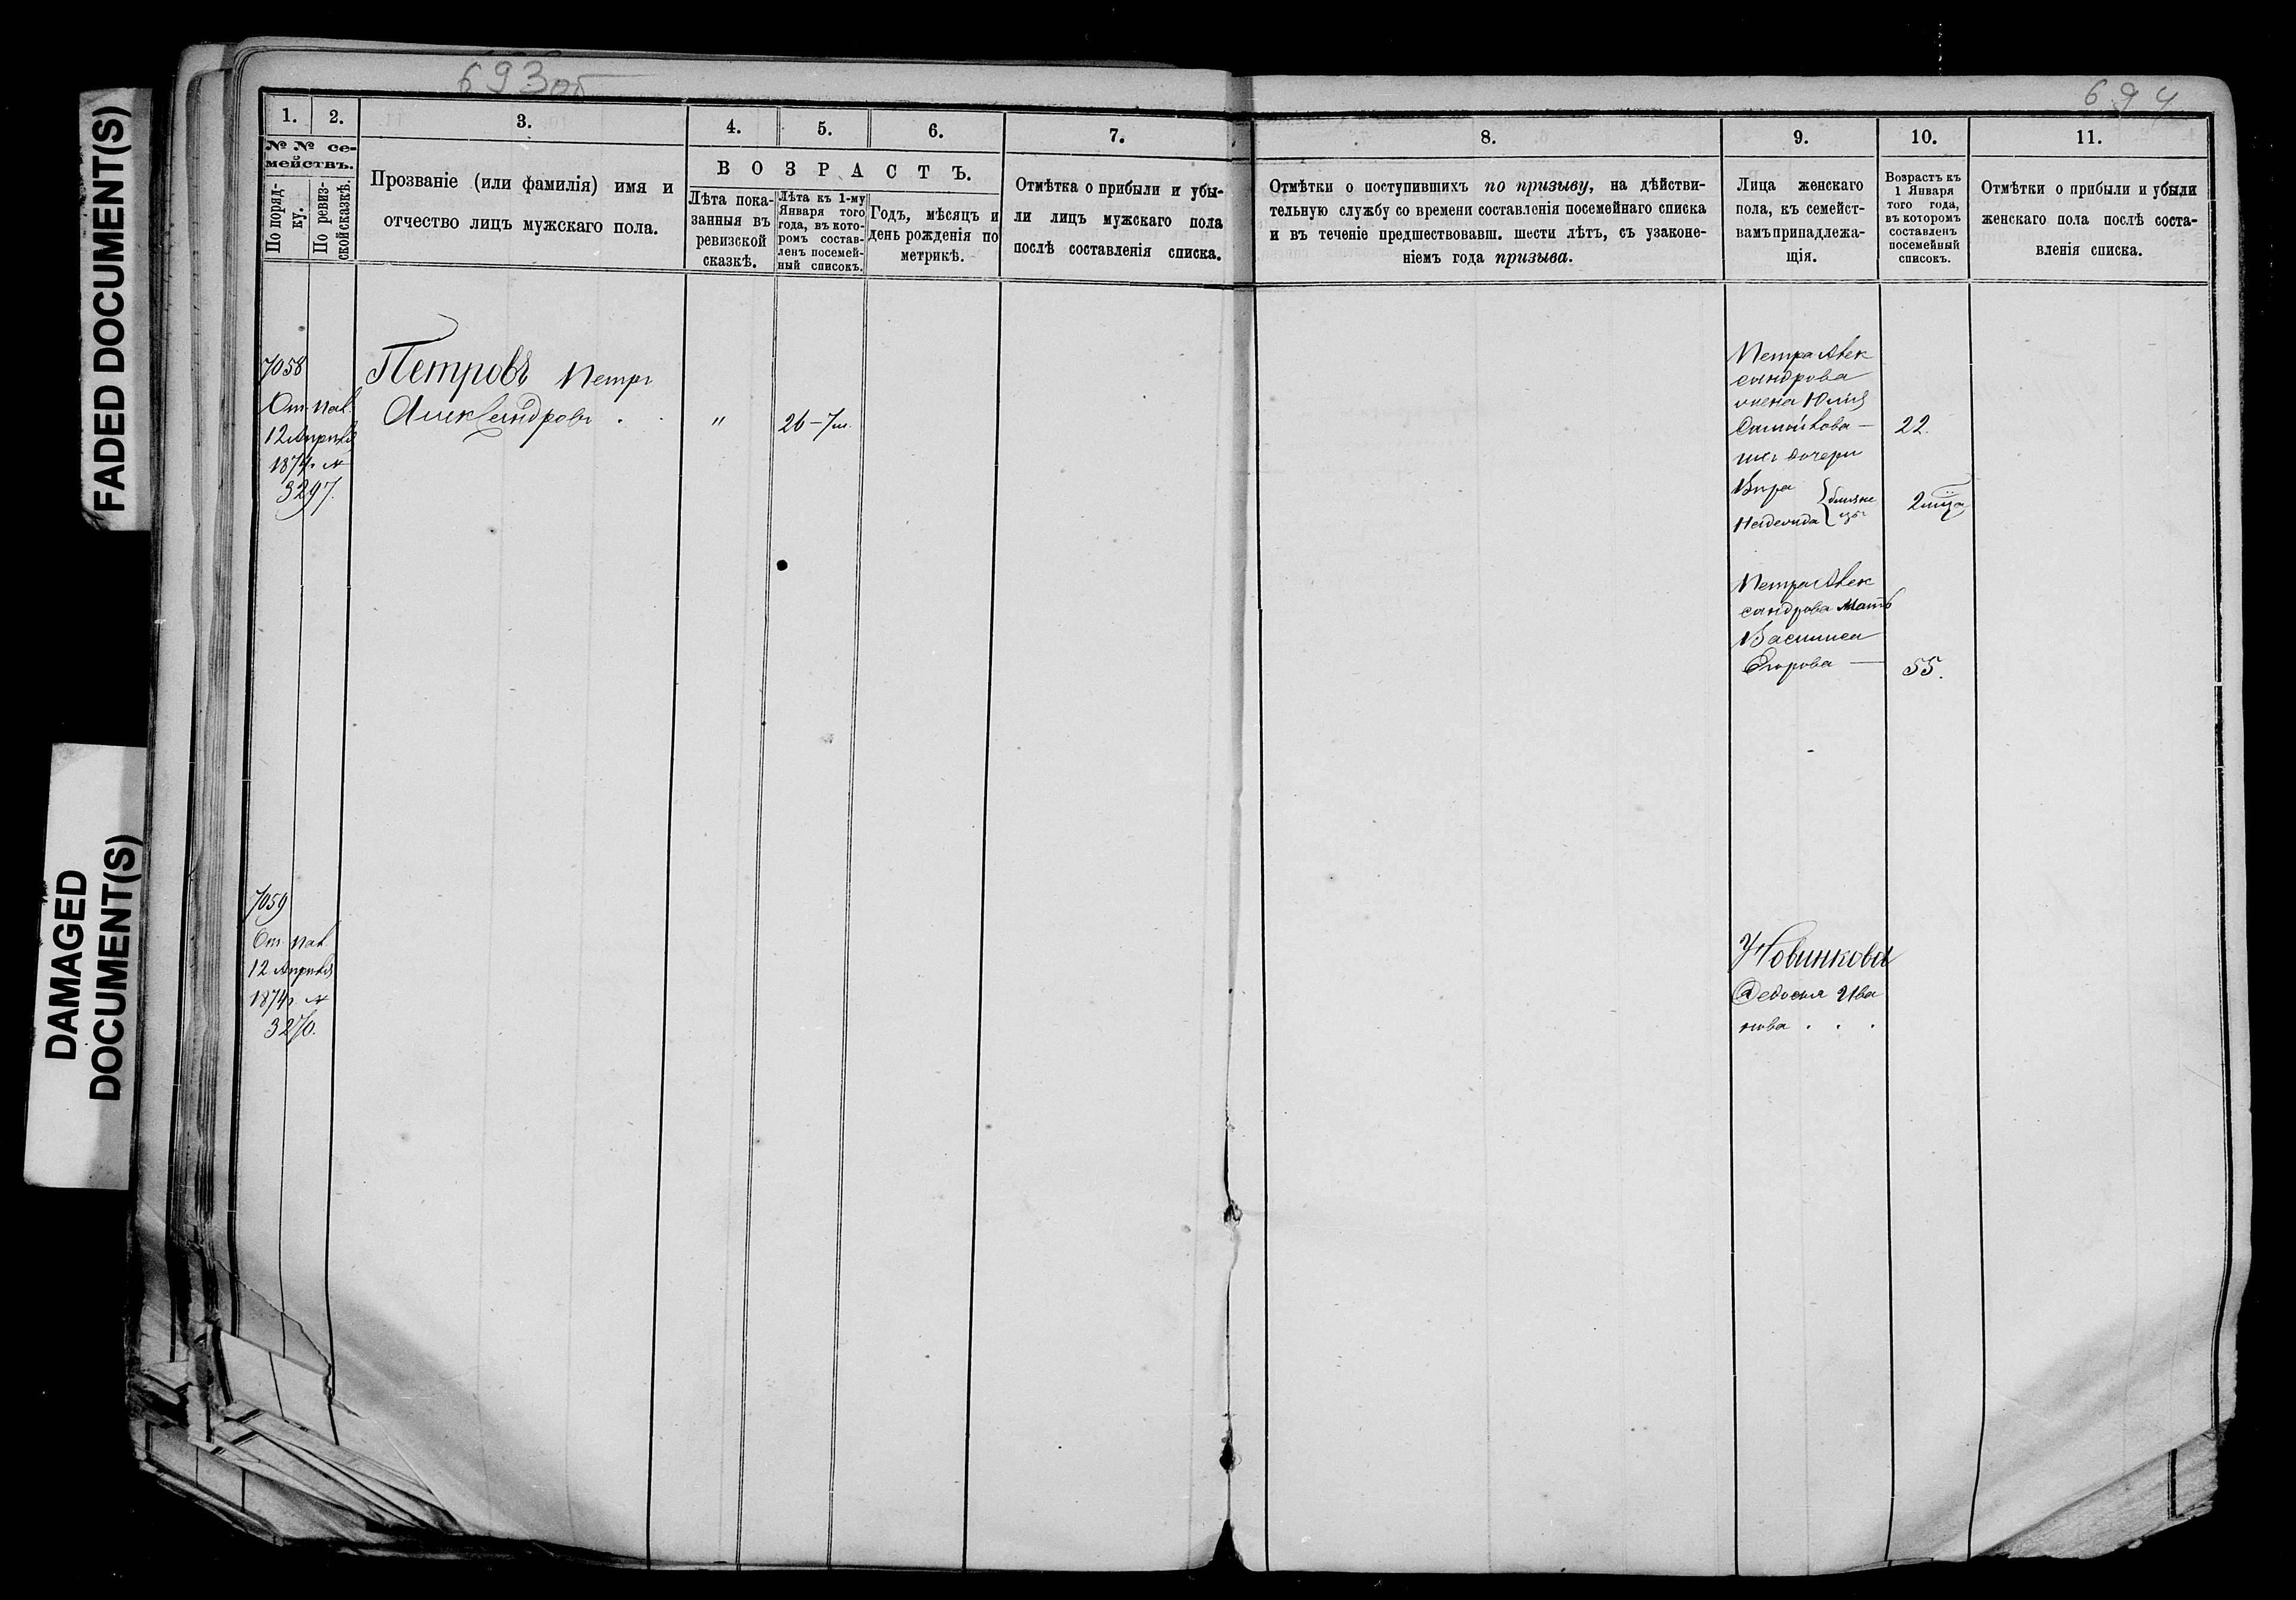 FADED DOCUMENT(S)
DAMAGED
DOCUMENT(S)
693об
694
1. 2. 3. 4. 5. 6. 7. 8. 9. 10. 11.
№ № се-
мействъ.
По поряд-
ку.
По ревиз-
ской сказкѣ.
Прозваніе (или фамилія) имя и
отчество лицъ мужскаго пола.
ВОЗРАСТЪ.
Лѣта пока-
занныя въ
ревизской
сказкѣ.
Лѣта къ 1-му
Января того
года, въ кото-
ромъ состав-
ленъ посемей-
ный списокъ.
Годъ, мѣсяцъ и
день рожденія по
метрикѣ.
Отмѣтка о прибыли и убы-
ли лицъ мужскаго пола
послѣ составленія списка.
Отмѣтки о поступившихъ по призыву, на дѣйстви-
тельную службу со времени составленія посемейнаго списка
и въ теченіе предшествовавш. шести лѣтъ, съ узаконе-
ніемъ года призыва.
Лица женскаго
пола, къ семейст-
вамъ принадлежа-
щія.
Возрастъ къ
1 Января
того года,
въ которомъ
составленъ
посемейный
списокъ.
Отмѣтки о прибыли и убыли
женскаго пола послѣ соста-
вленія списка.
7058
12 Апрѣля
1874 г. №
3297.
Петровъ Петръ
Александровъ . .
" 26 –
Петра Алек
сандрова
жена Юлія
— 22.
ихъ дочери
Вѣра
Надежда
близне
цы
2
Петра Алек
сандрова мать
Василиса
Егорова — 55.
7059
12 Апрѣля
1874 г. №
3270.
Новинкова
Федосья Ива
нова . . .